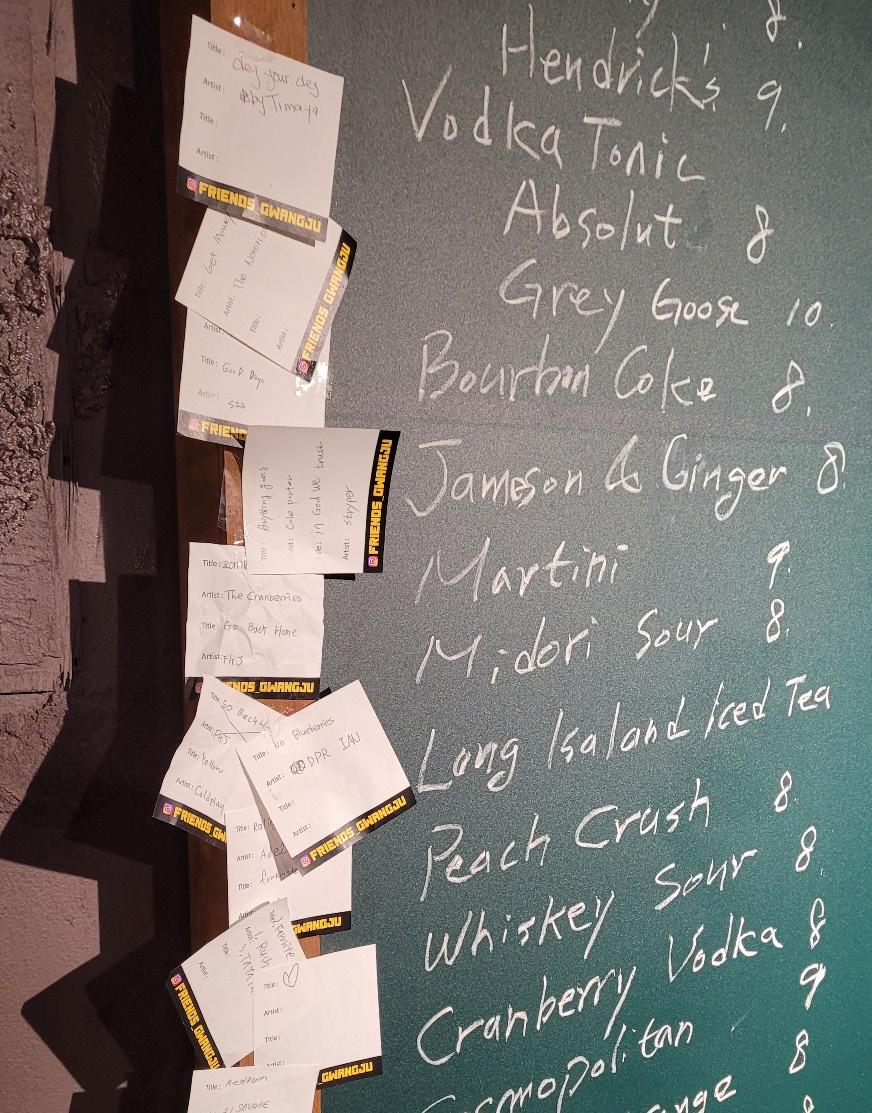 Title: dey your dey
Artist: by Timaya
Title:
Artist:
FRIENDS_GWANGJU
Title: Get Money
Artist: The
Title:
Artist:
FRIENDS_GWANGJU
Artist
Title: Good Days
Artist: SZA
FRIEND
Title: Anything goes
Cole porter
in God We trust
Artist: stryper
FRIENDS_GWANGJU
Title:
Artist: The Cranberries
Title: Go Back Home
Artist: FKJ
NDS_GWANGJU
Title: Go Back H
Artist: FKJ
Title: Yellow
Artist: Coldplay
FRIENDS_GW
Title: No Blueberries
Artist: DPR IAN
Title:
Artist:
FRIENDS_GWANGJU
Title: Rol
Artist: Adel
Title: fortunate
Artist
GWANGJU
Title: Favorite
Artist:
FRIENDS_GWANGJU
Title: ♡
Artist:
Title:
GWANGJU
Title: Redrum
21 SAVAGE
8.
Hendrick's 9.
Vodka Tonic
Absolut 8
Grey Goose 10.
Bourbon Coke 8.
Jameson & Ginger 8.
Martini 9.
Midori Sour 8.
Long Isaland Iced Tea
8.
Peach Crush
Whiskey Sour 8.
Cranberry Vodka 8
9
Cosmopolitan 8